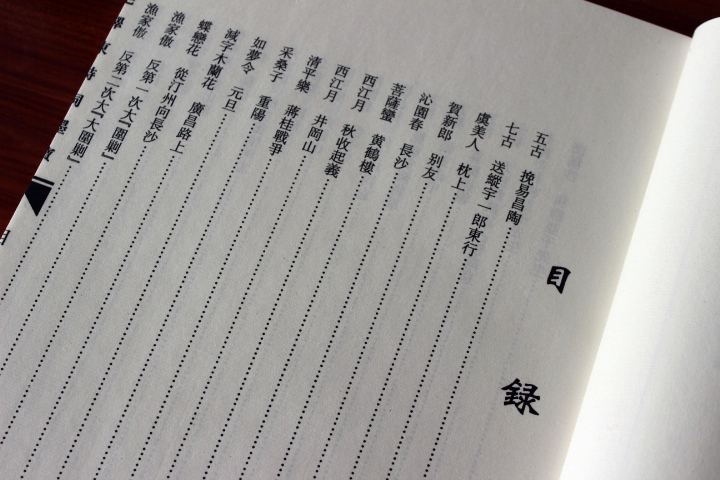 目録
五古 挽易昌陶
七古 送縱宇一郎東行
虞美人 枕上
賀新郎 別友
沁園春 長沙
菩薩蠻 黃鶴樓
西江月 秋收起義
西江月 井岡山
清平樂 蔣桂戰爭
采桑子 重陽
如夢令 元旦
減字木蘭花 廣昌路上
蝶戀花 從汀州向長沙
漁家傲 反第一次大『圍剿』
漁家傲 反第二次大『大圍剿』